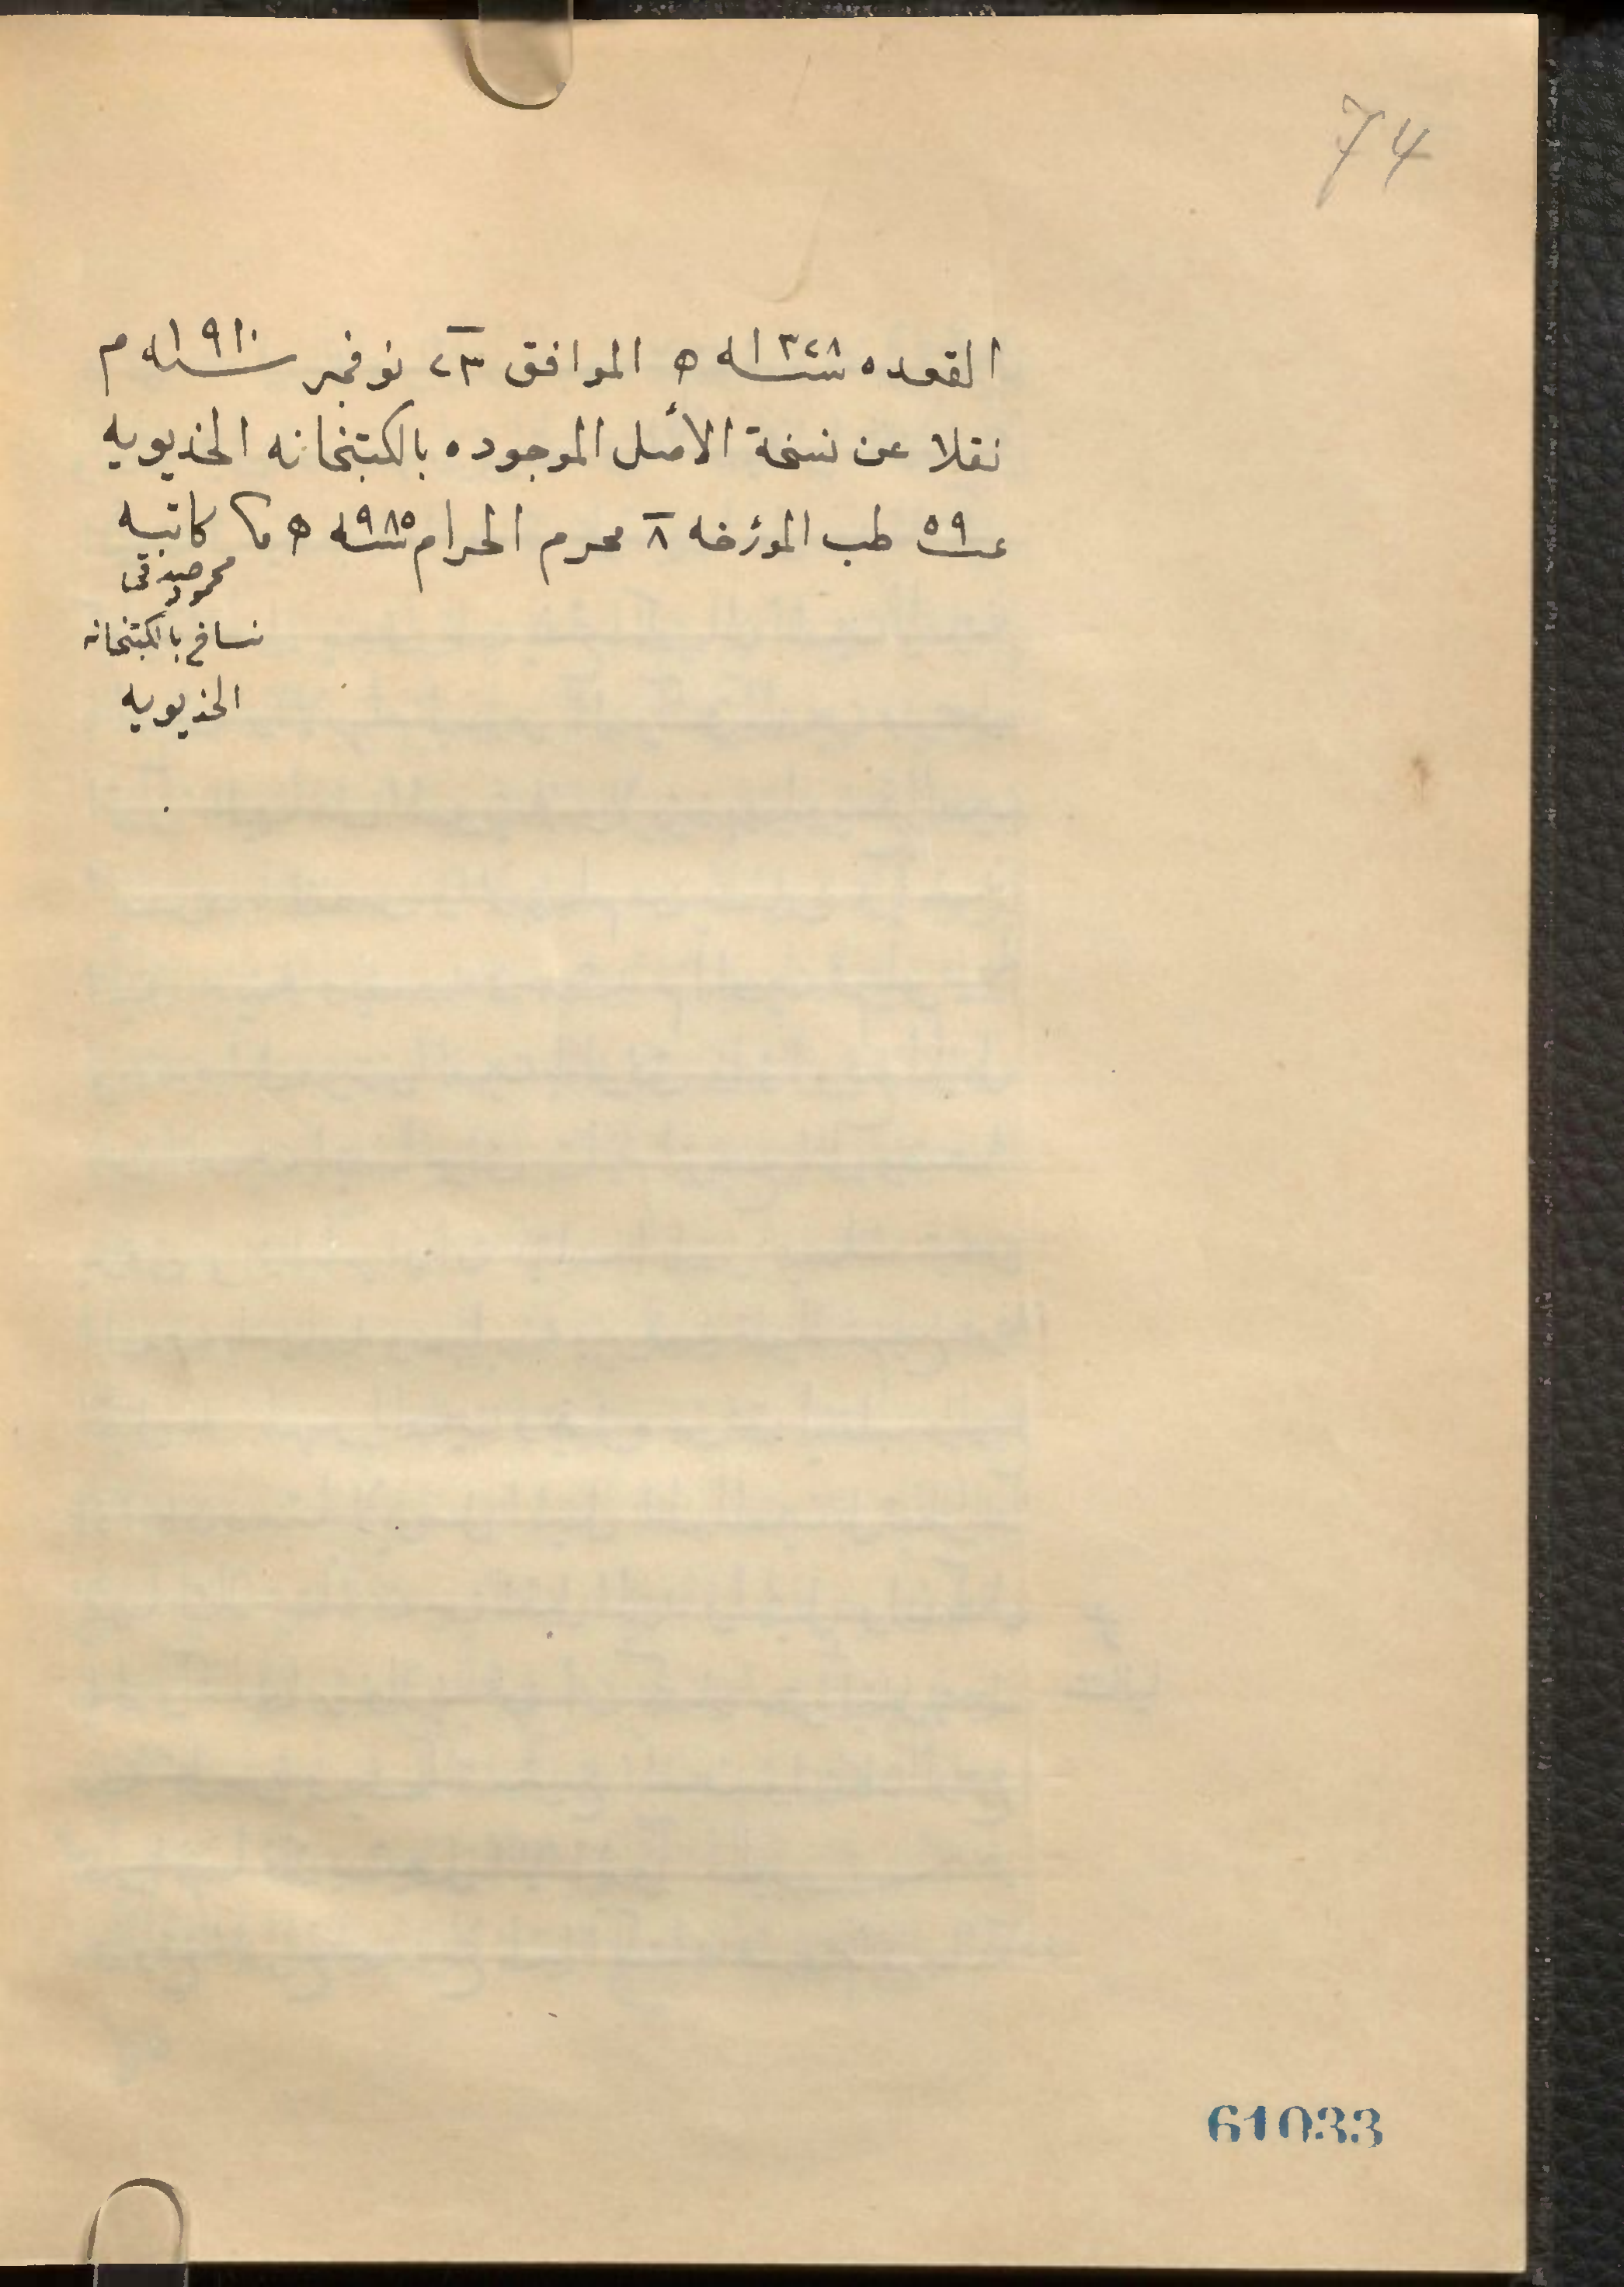 74
القعده سنة ١٣٢٨ ه الموافق ٢٣ نوفمبر سنة ١٩١٠ م
نقلا عن نسخة الأصل الموجوده بالكتبخانه الخديويه
عدد ٥٩ طب المؤرخه ٨ محرم الحرام سنة ٩٨٥ ه كاتبه
محمود صدقى
نساخ بالكتبخانه
الخديويه
61033